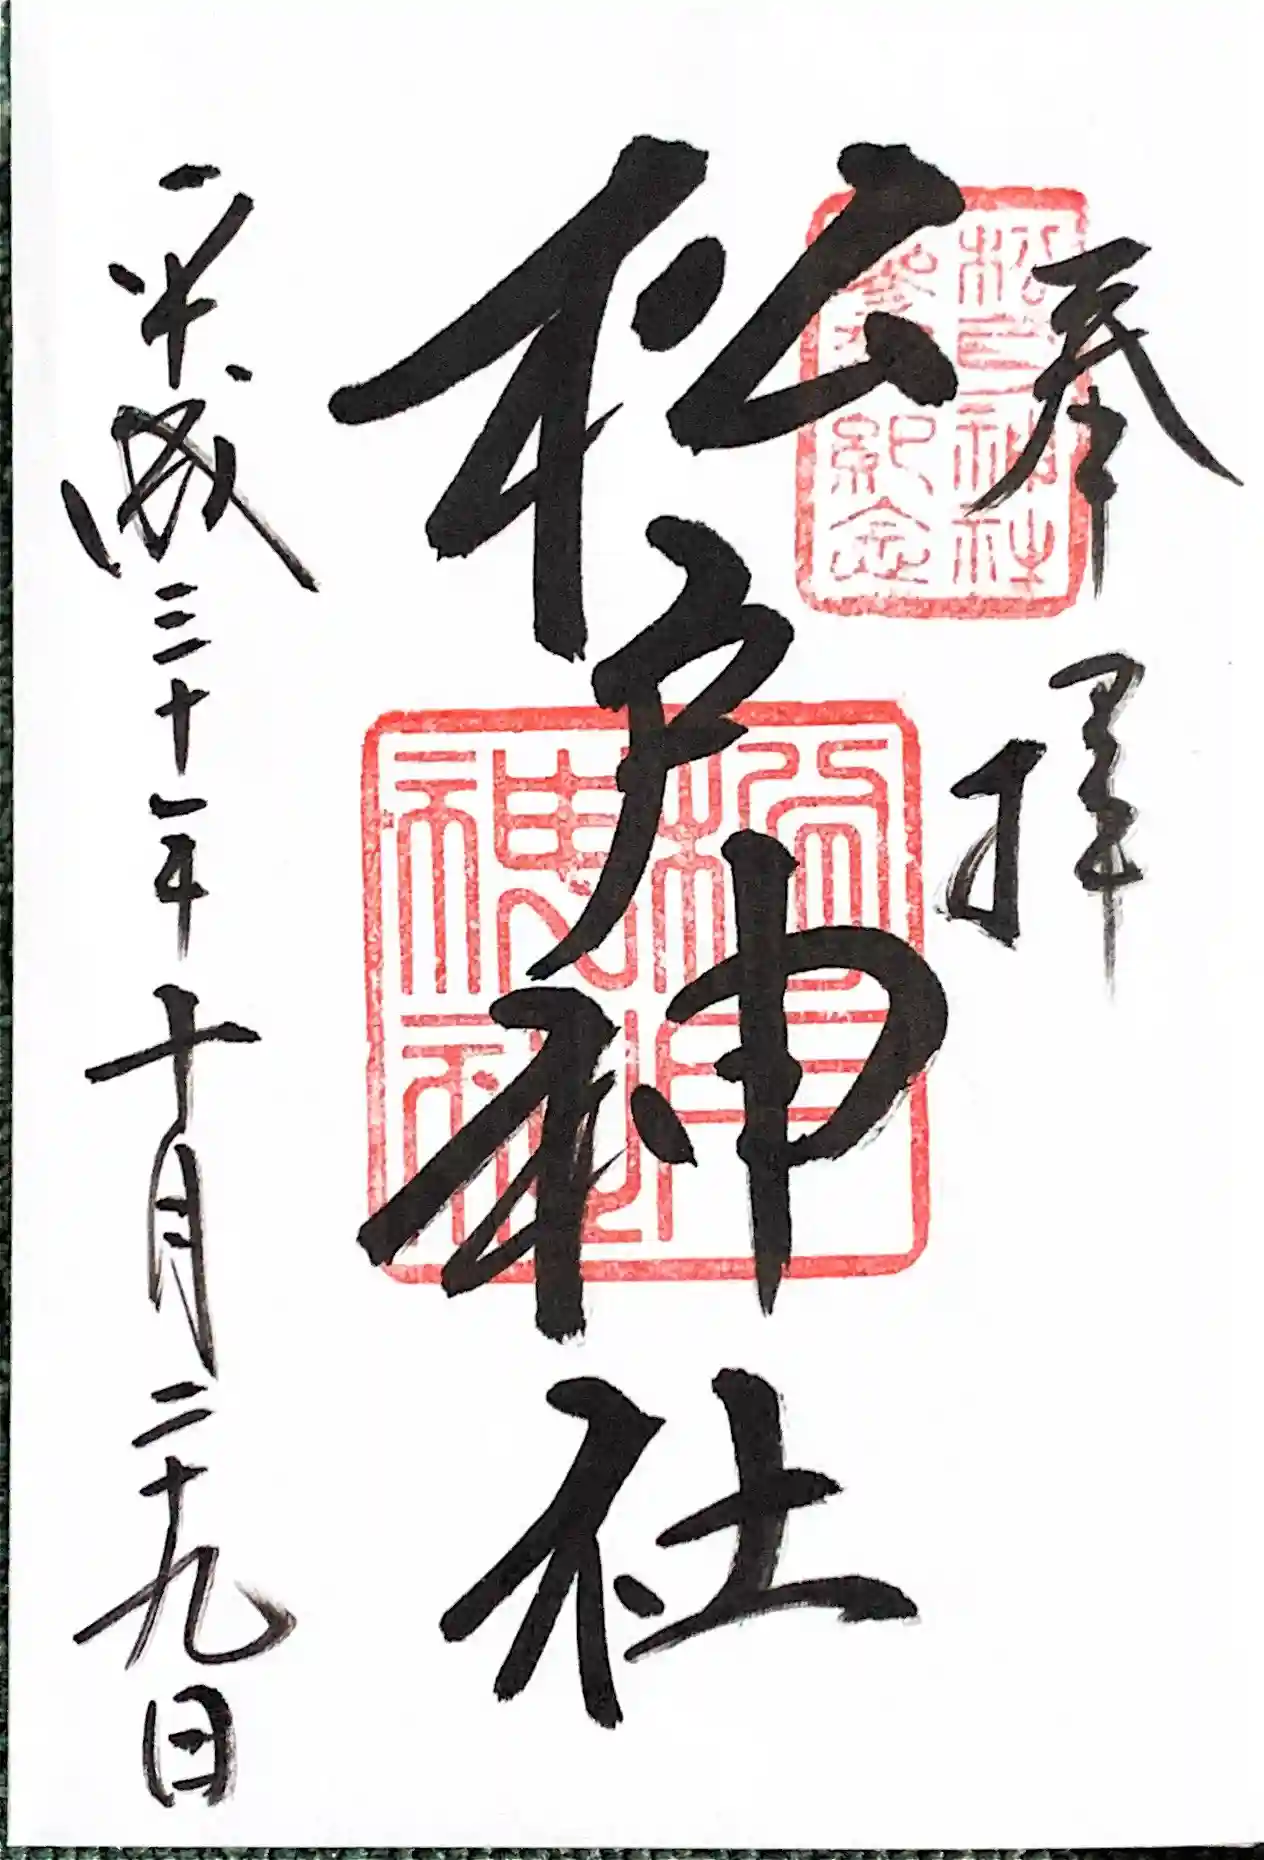 奉拝
松戸神社
参拝紀念
松戸神社
松戸
神社
平成三十年十月二十九日